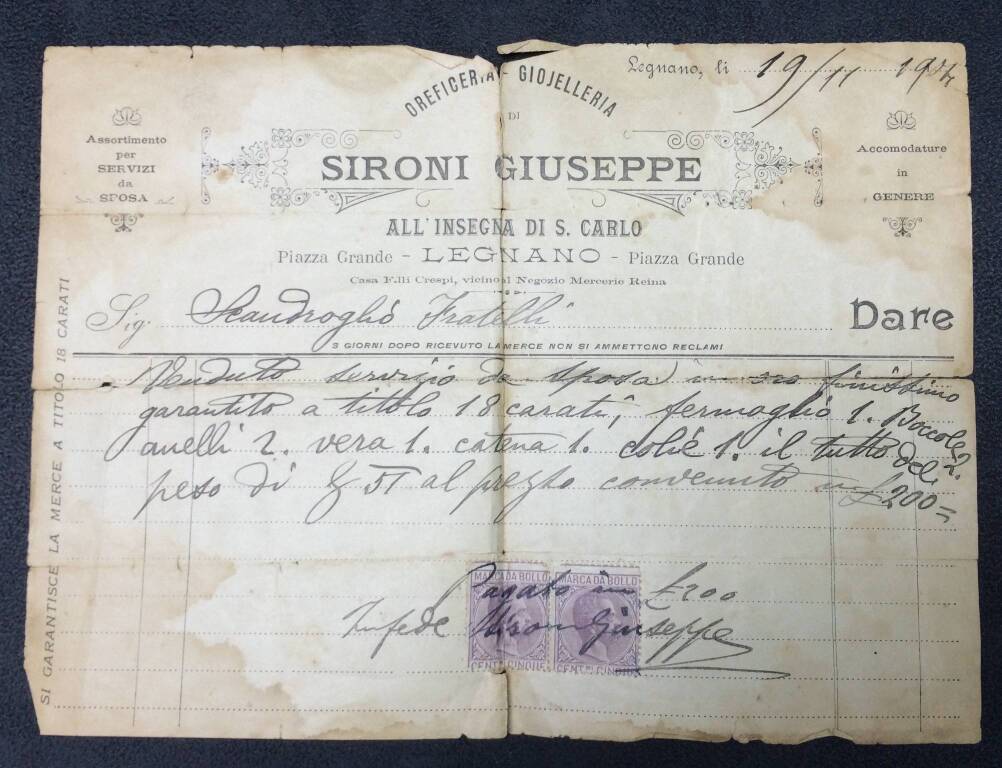 Legnano, li 19/11 19
OREFICERIA - GIOJELLERIA
DI
SIRONI GIUSEPPE
Assortimento
per
SERVIZI
da
SPOSA
Accomodature
in
GENERE
ALL'INSEGNA DI S. CARLO
Piazza Grande - LEGNANO - Piazza Grande
Casa F.lli Crespi, vicino al Negozio Mercerie Reina
Sig. Scandroglio Fratelli Dare
3 GIORNI DOPO RICEVUTO LA MERCE NON SI AMMETTONO RECLAMI
SI GARANTISCE LA MERCE A TITOLO 18 CARATI
Venduto servizio da sposa in oro finissimo
garantito a titolo 18 carati, fermaglio 1. Boccole 2.
anelli 2. vera 1. catena 1. colié 1. il tutto del
peso di g 51 al prezzo convenuto in £ 200=
MARCA DA BOLLO MARCA DA BOLLO
Pagato in £ 200
In fede Sironi Giuseppe
CENT. CINQUE CENT. CINQUE